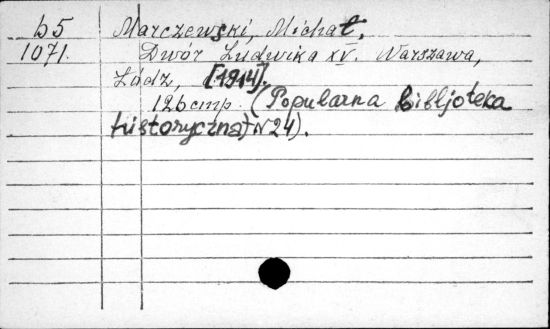 b5 Marczewski, Michał,
1071. Dwór Ludwika XV. Warszawa,
Łódz, [1914].
126 cmp. (Popularna bibljoteka
historyczna) N 24).